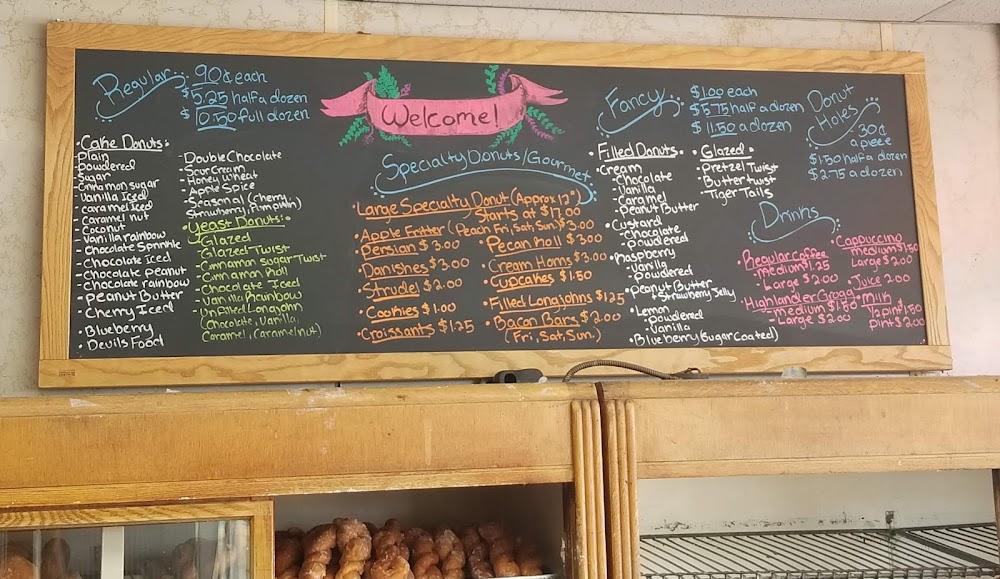 Regular
90¢ each
$5.25 half a dozen
$10.50 full dozen
• Cake Donuts:
- Plain
- Powdered
- Sugar
- Cinnamon sugar
- Vanilla Iced
- Caramel Iced
- Caramel nut
- Coconut
- Vanilla rainbow
- Chocolate Sprinkle
- Chocolate Iced
- Chocolate peanut
- Chocolate rainbow
- Peanut Butter
- Cherry Iced
- Blueberry
- Devils Food
- Double Chocolate
- Sour Cream
- Honey Wheat
- Apple Spice
- Seasonal (Cherry,
Strawberry, Pumpkin)
• Yeast Donuts:
- Glazed
- Glazed Twist
- Cinnamon sugar Twist
- Cinnamon Roll
- Chocolate Iced
- Vanilla Rainbow
- Unfilled Longjohn
(Chocolate, Vanilla,
Caramel, Caramel nut)
Welcome!
Specialty Donuts/Gourmet
• Large Specialty Donut (Approx 12")
Starts at $17.00
• Apple Fritter (Peach Fri, Sat, Sun) $3.00
• Persian $3.00
• Danishes $3.00
• Strudel $2.00
• Cookies $1.00
• Croissants $1.25
• Pecan Roll $3.00
• Cream Horns $3.00
• Cupcakes $1.50
• Filled Longjohns $1.25
• Bacon Bars $2.00
(Fri, Sat, Sun.)
Fancy
$1.00 each
$5.75 half a dozen
$11.50 a dozen
• Filled Donuts:
• Cream
- Chocolate
- Vanilla
- Caramel
- Peanut Butter
• Custard
- Chocolate
- Powdered
• Raspberry
- Vanilla
- Powdered
• Peanut Butter
+ Strawberry Jelly
• Lemon
- Powdered
- Vanilla
• Blueberry (Sugar Coated)
• Glazed:
- Pretzel Twist
- Butter twist
- Tiger Tails
Donut
Holes
30¢
a piece
$1.50 half a dozen
$2.75 a dozen
Drinks
• Regular Coffee
- medium $1.25
- Large $2.00
• Highlander Grogg
- medium $1.50
- Large $2.00
• Cappuccino
medium $1.50
Large $2.00
• Juice 2.00
• Milk
1/2 pint $1.50
pint $2.00